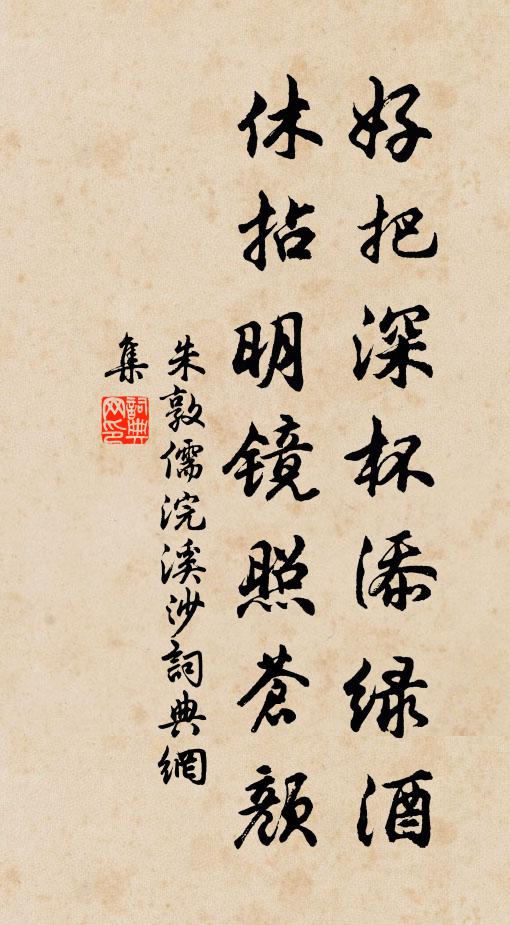 好把深杯添绿酒
休拈明镜照苍颜
朱敦儒浣溪沙詞典網
集
詞典网印